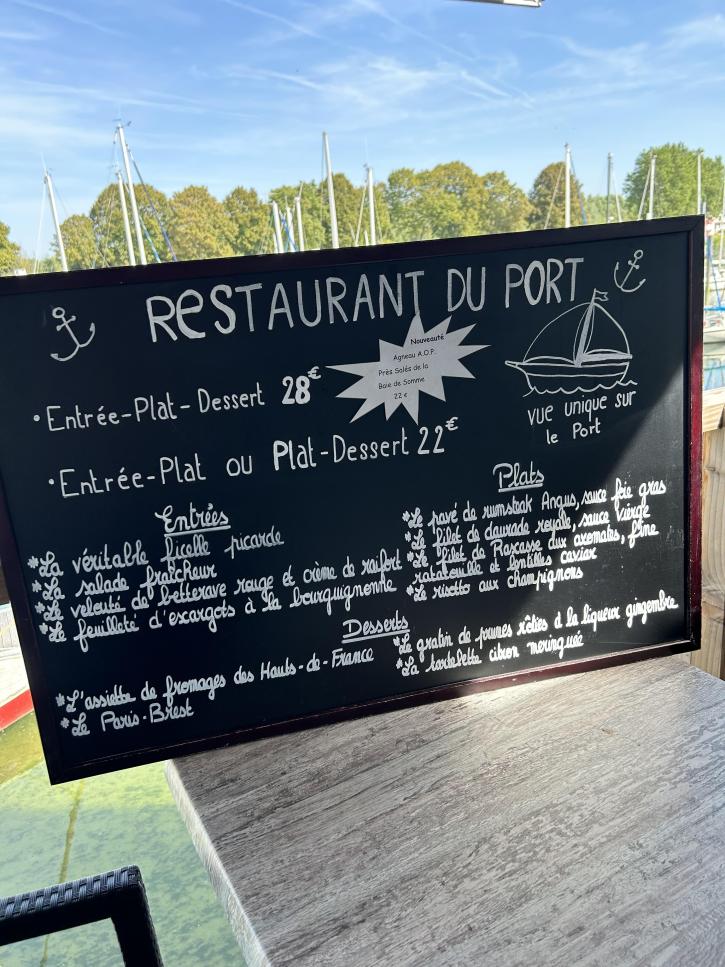 RESTAURANT DU PORT
Nouveauté
Agneau A.O.P.
Près Salés de la
Baie de Somme
22 €
• Entrée-Plat-Dessert 28€
• Entrée-Plat ou Plat-Dessert 22€
vue unique sur
le Port
Entrées
*La véritable ficelle picarde
*La salade fraîcheur
*Le velouté de betterave rouge et crème de raifort
*Le feuilleté d'escargots à la bourguignonne
Plats
*Le pavé de rumsteak Angus, sauce foie gras
*Le filet de daurade royale, sauce vierge
*Le filet de Rascasse aux aromates, fine
ratatouille et lentilles caviar
*Le risotto aux champignons
Desserts
*L'assiette de fromages des Hauts-de-France
*Le Paris-Brest
*Le gratin de prunes rôties à la liqueur gingembre
*La tartelette citron meringuée